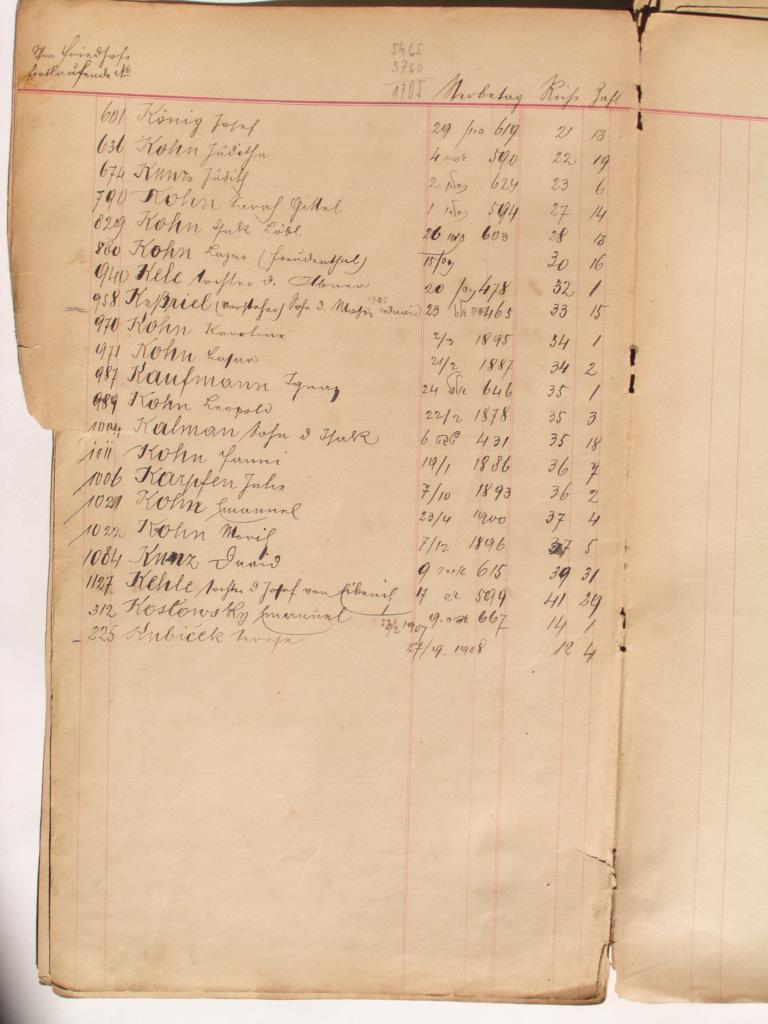 Im Friedhofe
fortlaufende No
5465
3760
1705
Sterbetag Reihe Zahl
601 König Josef 29 619 21 13
636 Kohn Juditha 4 590 22 19
674 Kunz Judith 2 624 23 6
790 Kohn Sarah Gittel 1 594 27 14
829 Kohn Isak Löbl 26 603 28 13
880 Kohn Lazar (Freudenthal) 15 30 16
940 Kele Tochter d. Abner 20 478 32 1
958 Keßriel (Vorsteher) Sohn d. David 23 465 33 15
970 Kohn Karoline 2/3 1895 34 1
971 Kohn Lasar 21/2 1887 34 2
987 Kaufmann Ignaz 24 646 35 1
989 Kohn Leopold 22/2 1878 35 3
1004 Kalman Sohn d Isak 6 431 35 18
1011 Kohn Fanni 19/1 1886 36 7
1006 Karpfen Julie 7/10 1893 36 2
1021 Kohn Emanuel 23/4 1900 37 4
1022 Kohn Moriz 7/12 1896 37 5
1084 Kunz David 9 615 39 31
1127 Kehle Tochter d Josef von Eibenich 17 599 41 29
312 Kostowsky Emanuel 23/2 1907 9. 667 14 1
225 Kubiček Terese 27/ 1908 12 4